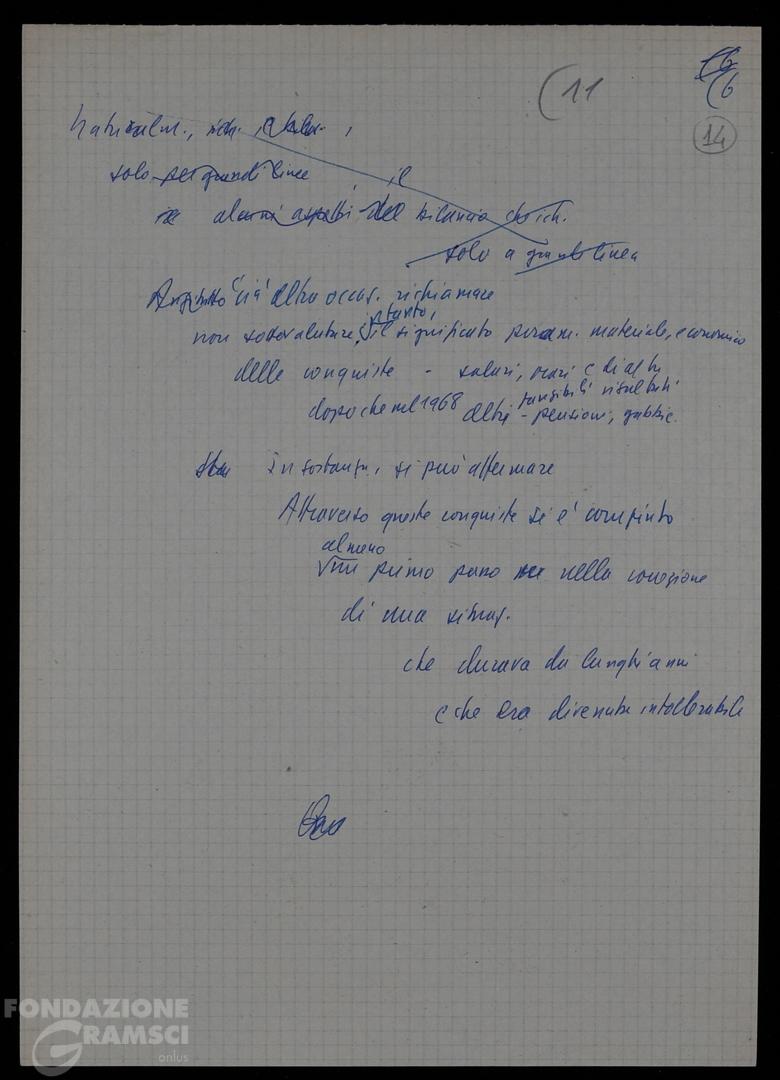 (11
16
(6
14
Naturalm., rich. ,
solo per grandi linee , il
alcuni aspetti del bilancio
solo a grandi linee
Anzitutto già altra occas. richiamare
tanto,
non sottovalutare, il significato materiale, economico
delle conquiste - salari, orari e di altri
tangibili risultati
dopo che nel 1968 altri - pensioni, gabbie.
In sostanza, si può affermare
Attraverso queste conquiste si è compiuto
almeno
un primo passo nella correzione
di una situaz.
che durava da lunghi anni
e che era divenuta intollerabile
Ora
FONDAZIONE
GRAMSCI
onlus